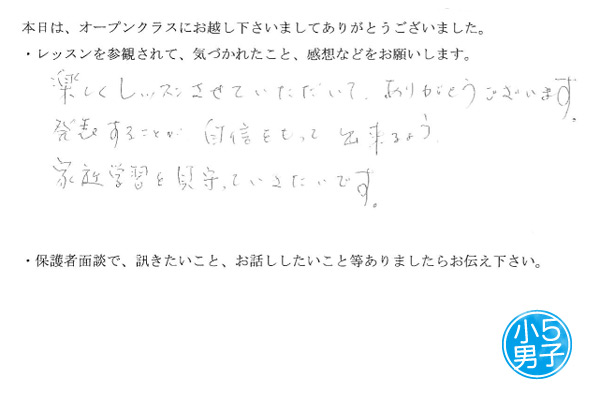 本日は、オープンクラスにお越し下さいましてありがとうございました。
・レッスンを参観されて、気づかれたこと、感想などをお願いします。
楽しくレッスンさせていただいて、ありがとうございます。
発表することが自信をもって出来るよう、
家庭学習を見守っていきたいです。
・保護者面談で、訊きたいこと、お話ししたいこと等ありましたらお伝え下さい。
小5
男子